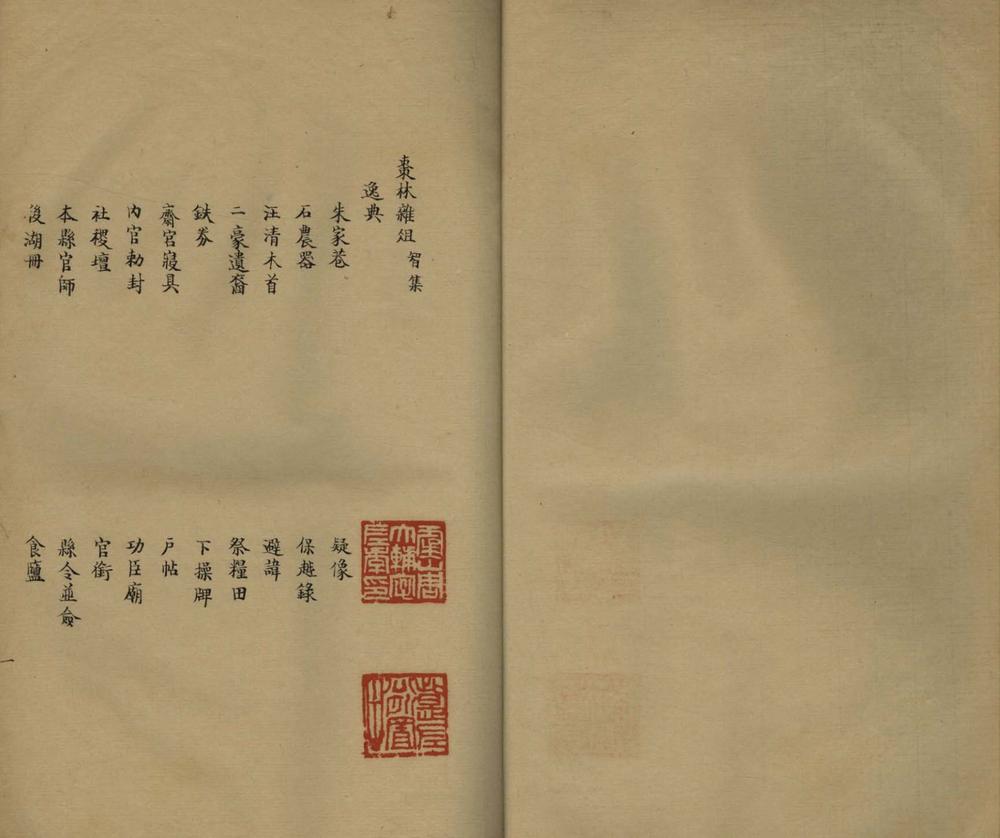 棗林雜俎 智集
逸典
朱家巷 疑像
石農器 保越錄
汪清木首 避諱
二豪遺裔 祭糧田
鉄券 下操牌
齋宮寢具 戶帖
內官勅封 功臣廟
社稷壇 官銜
本縣官師 縣令並僉
後湖冊 食鹽